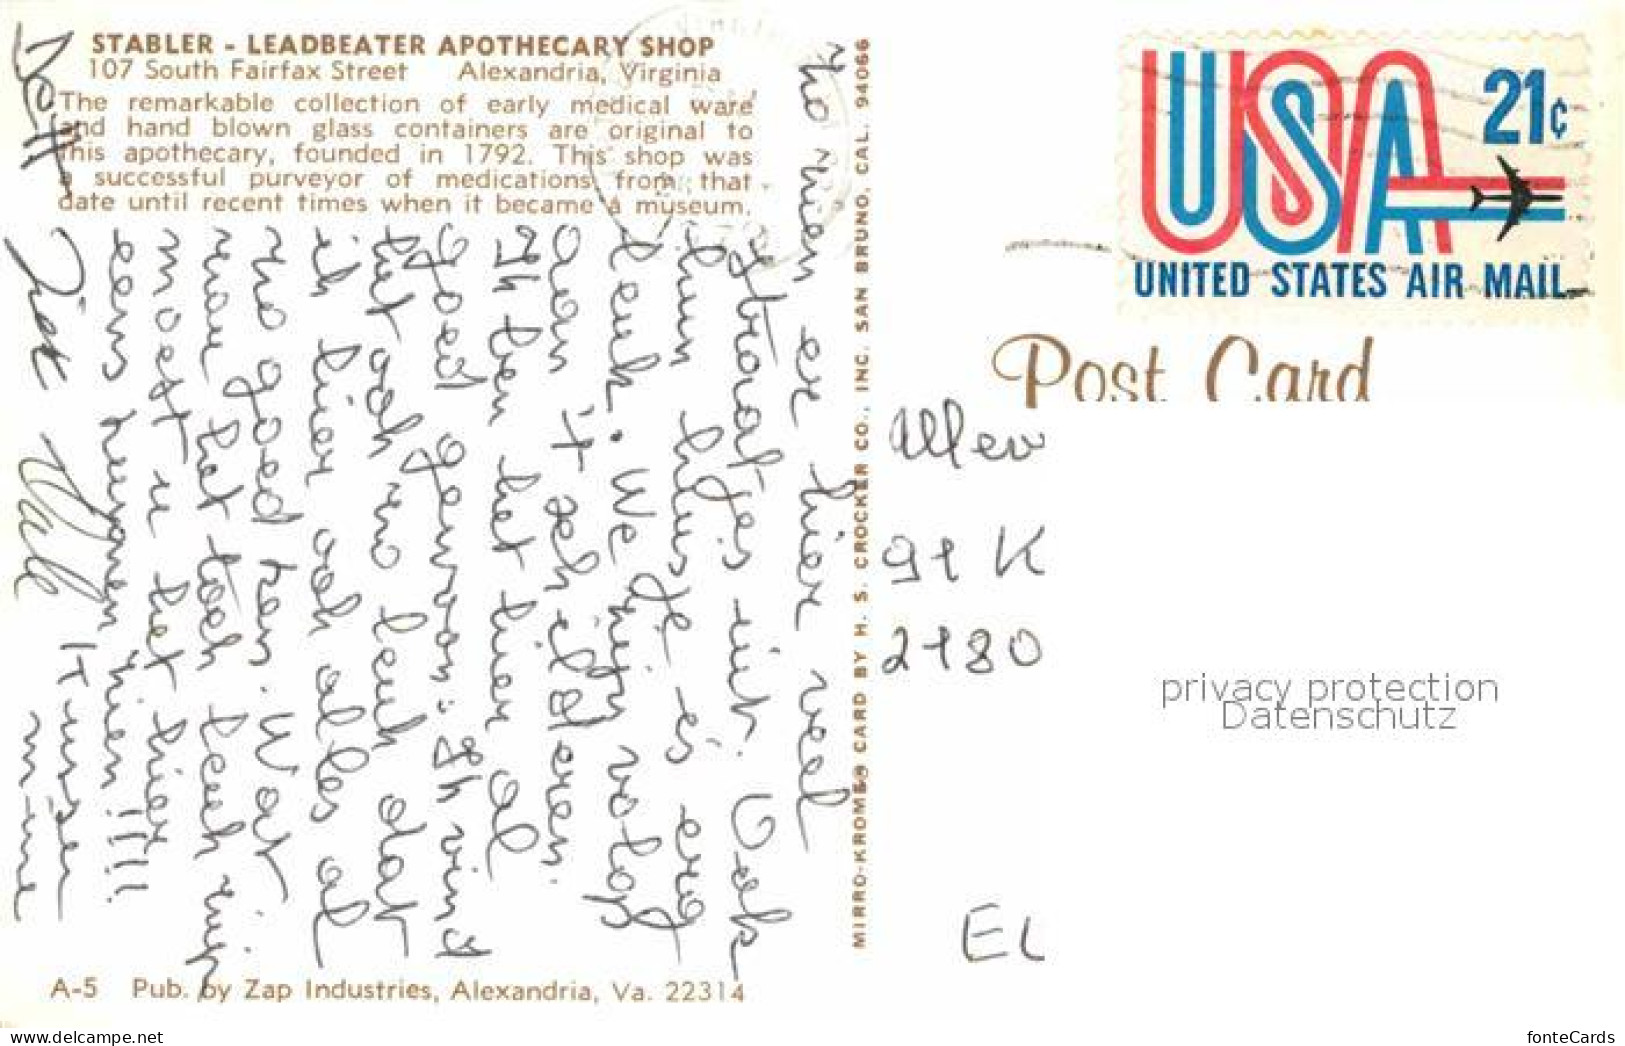 STABLER - LEADBEATER APOTHECARY SHOP
107 South Fairfax Street Alexandria, Virginia
The remarkable collection of early medical ware
and hand blown glass containers are original to
this apothecary, founded in 1792. This shop was
a successful purveyor of medications from that
date until recent times when it became a museum.
zo zien er hier veel
straatjes uit. Ook
hun huisje is erg
leuk. We zijn volop
aan 't schilderen.
Ik ben het hier al
goed gewoon: Ik vind
het ook zo leuk dat
ik hier ook alles al
zo goed ken. Wat
zou het toch leuk zijn
moest u het hier
eens kunnen zien!!!!
A-5 Pub. by Zap Industries, Alexandria, Va. 22314
MIRRO-KROME® CARD BY H. S. CROCKER CO., INC. SAN BRUNO, CAL. 94066
USA
21¢
UNITED STATES AIR MAIL
Post Card
91 K
2180
EL
privacy protection
Datenschutz
www.delcampe.net
fonteCards